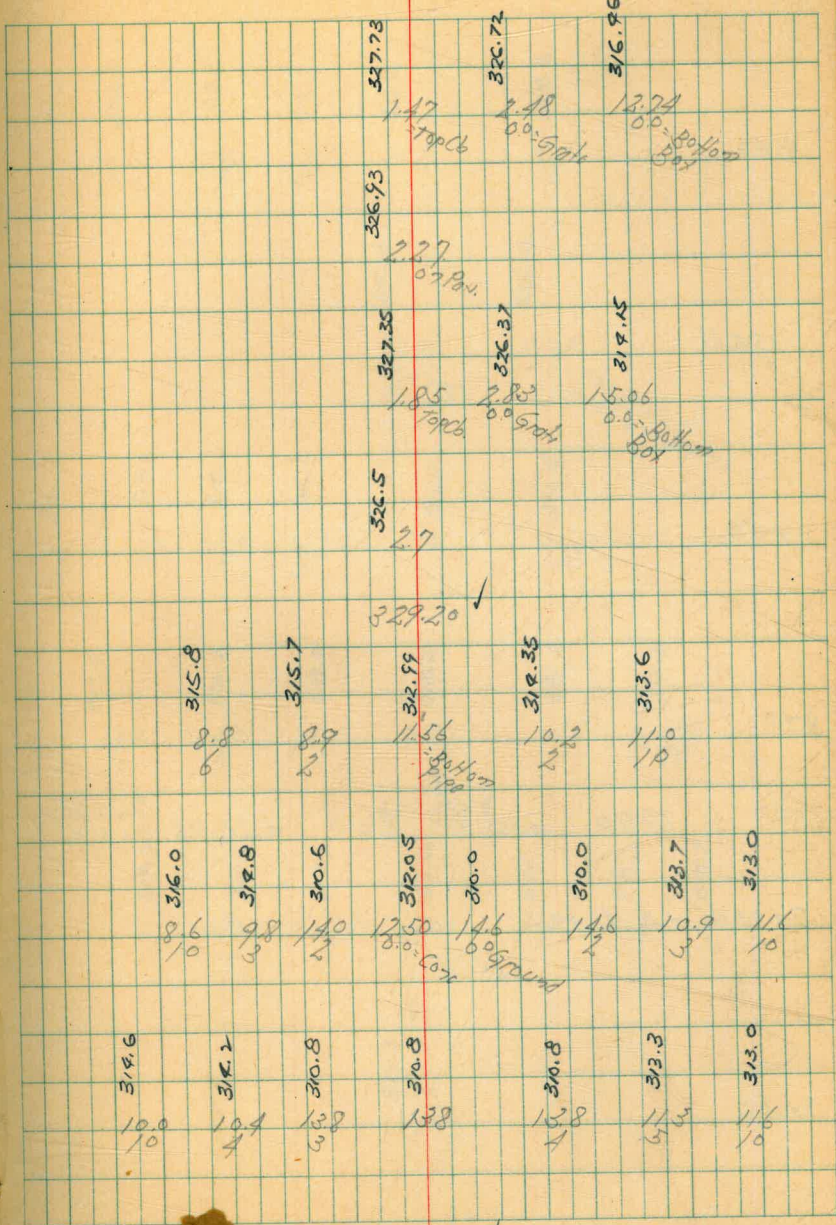 327.73 326.72 316.46
1.47 2.48 12.74
=TopCb 0.0=Grate 0.0=Bottom
Box
326.93
2.27
on Pav.
327.35 326.37 314.15
1.85 2.83 15.06
TopCb. 0.0 Grate 0.0=Bottom
Box
326.5
2.7
329.20 ✓
315.8 315.7 312.99 314.35 313.6
8.8 8.9 11.56 10.2 11.0
6 2 =Bottom 2 10
Pipe
316.0 314.8 310.6 312.05 310.0 310.0 313.7 313.0
8.6 9.8 14.0 12.50 14.6 14.6 10.9 11.6
10 3 2 0.0=Conc 0.0 Ground 2 3 10
314.6 314.2 310.8 310.8 310.8 313.3 313.0
10.0 10.4 13.8 13.8 13.8 11.3 11.6
10 4 3 4 5 10